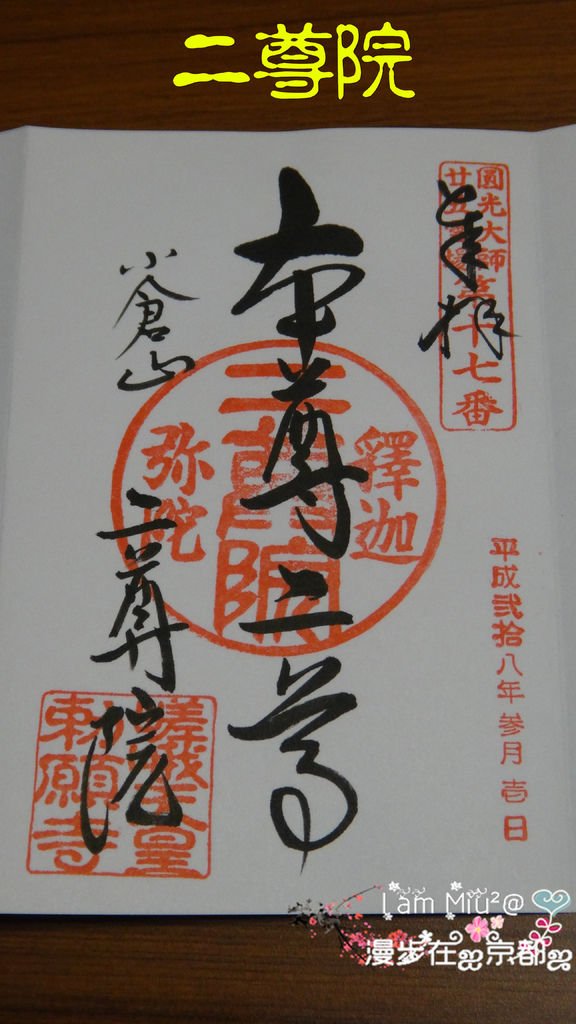 二尊院
圓光大師
廿五霊場
第十七番
奉拝
平成弐拾八年参月壱日
本尊二尊
釋迦
二尊院
弥陀
小倉山
二尊院
嵯峨天皇
勅願寺
I am Miu²@
漫步在 京都